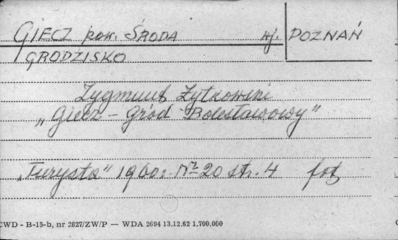 GIECZ pow. ŚRODA wj. POZNAŃ
GRODZISKO
Zygmunt Żytkowski
„Giecz – Gród Bolesławowy"
„Turysta" 1960 r. Nr 20 str. 4 fot.
CWD - B-15-b, nr 2827/ZW/P — WDA 2694 13.12.62 1,700,000